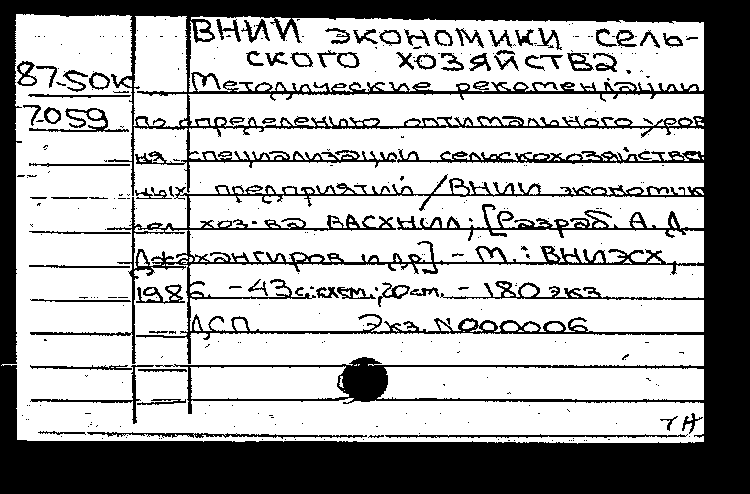 ВНИИ экономики сель-
ского хозяйства.
87-50к Методические рекомендации
7059 по определению оптимального уров
ня специализации сельскохозяйствен
ных предприятий / ВНИИ экономик
сел. хоз-ва ВАСХНИЛ; [Разраб. А. Д.
Джахангиров и др]. - М.: ВНИЭСХ,
1986. - 43 с.: схем.; 20 см. - 180 экз.
ДСП. Экз. N000006